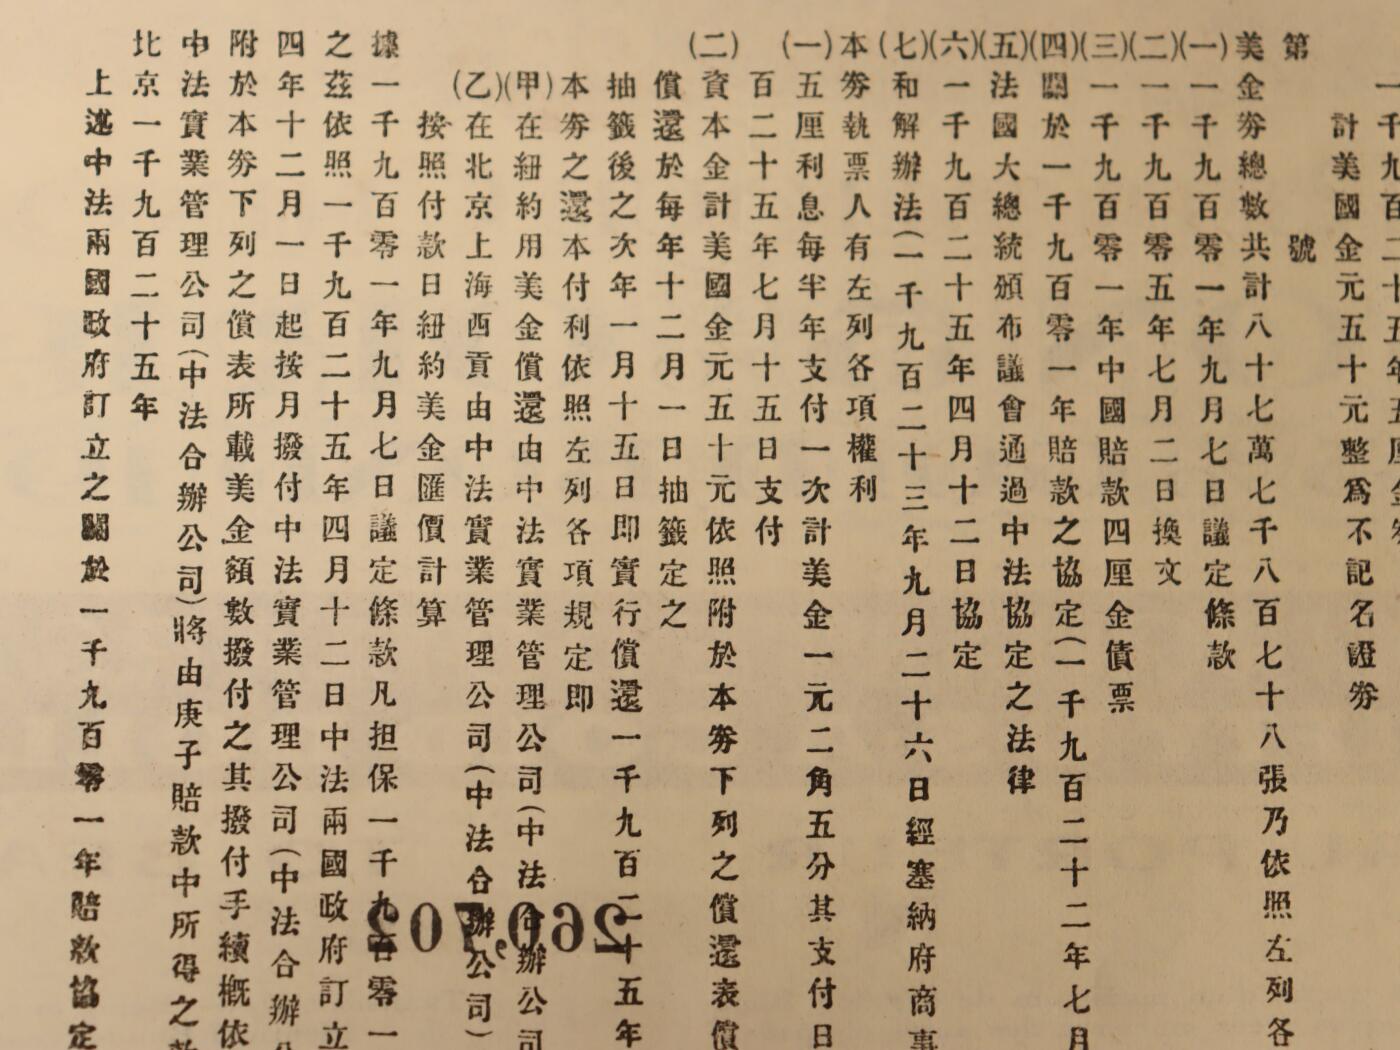 一千九百二十五年五厘金券
計美國金元五十元整爲不記名證券
第　號
美金券總數共計八十七萬七千八百七十八張乃依照左列各
(一)一千九百零一年九月七日議定條款
(二)一千九百零五年七月二日換文
(三)一千九百零一年中國賠款四厘金債票
(四)關於一千九百零一年賠款之協定(一千九百二十二年七月
(五)法國大總統頒布議會通過中法協定之法律
(六)一千九百二十五年四月十二日協定
(七)和解辦法(一千九百二十三年九月二十六日經塞納府商事
本券執票人有左列各項權利
(一)五厘利息每半年支付一次計美金一元二角五分其支付日
百二十五年七月十五日支付
(二)資本金計美國金元五十元依照附於本券下列之償還表償
償還於每年十二月一日抽籤定之
抽籤後之次年一月十五日即實行償還一千九百二十五年
本券之還本付利依照左列各項規定即
(甲)在紐約用美金償還由中法實業管理公司(中法合辦公司
(乙)在北京上海西貢由中法實業管理公司(中法合辦公司)
按照付款日紐約美金匯價計算
據一千九百零一年九月七日議定條款凡担保一千九百零一
之茲依照一千九百二十五年四月十二日中法兩國政府訂立
四年十二月一日起按月撥付中法實業管理公司(中法合辦公
附於本券下列之償表所載美金額數撥付之其撥付手續概依
中法實業管理公司(中法合辦公司)將由庚子賠款中所得之款
北京一千九百二十五年
上述中法兩國政府訂立之關於一千九百零一年賠款協定
260,702